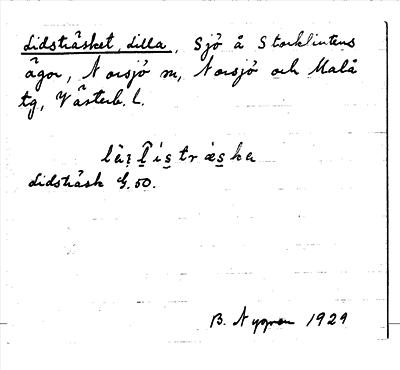 Lidsträsket, Lilla, Sjö å Storklintens
ägor, Norsjö sn, Norsjö och Malå
tg, Västerb. L.
Lidsträsk G. 50.
B. Nygren 1929